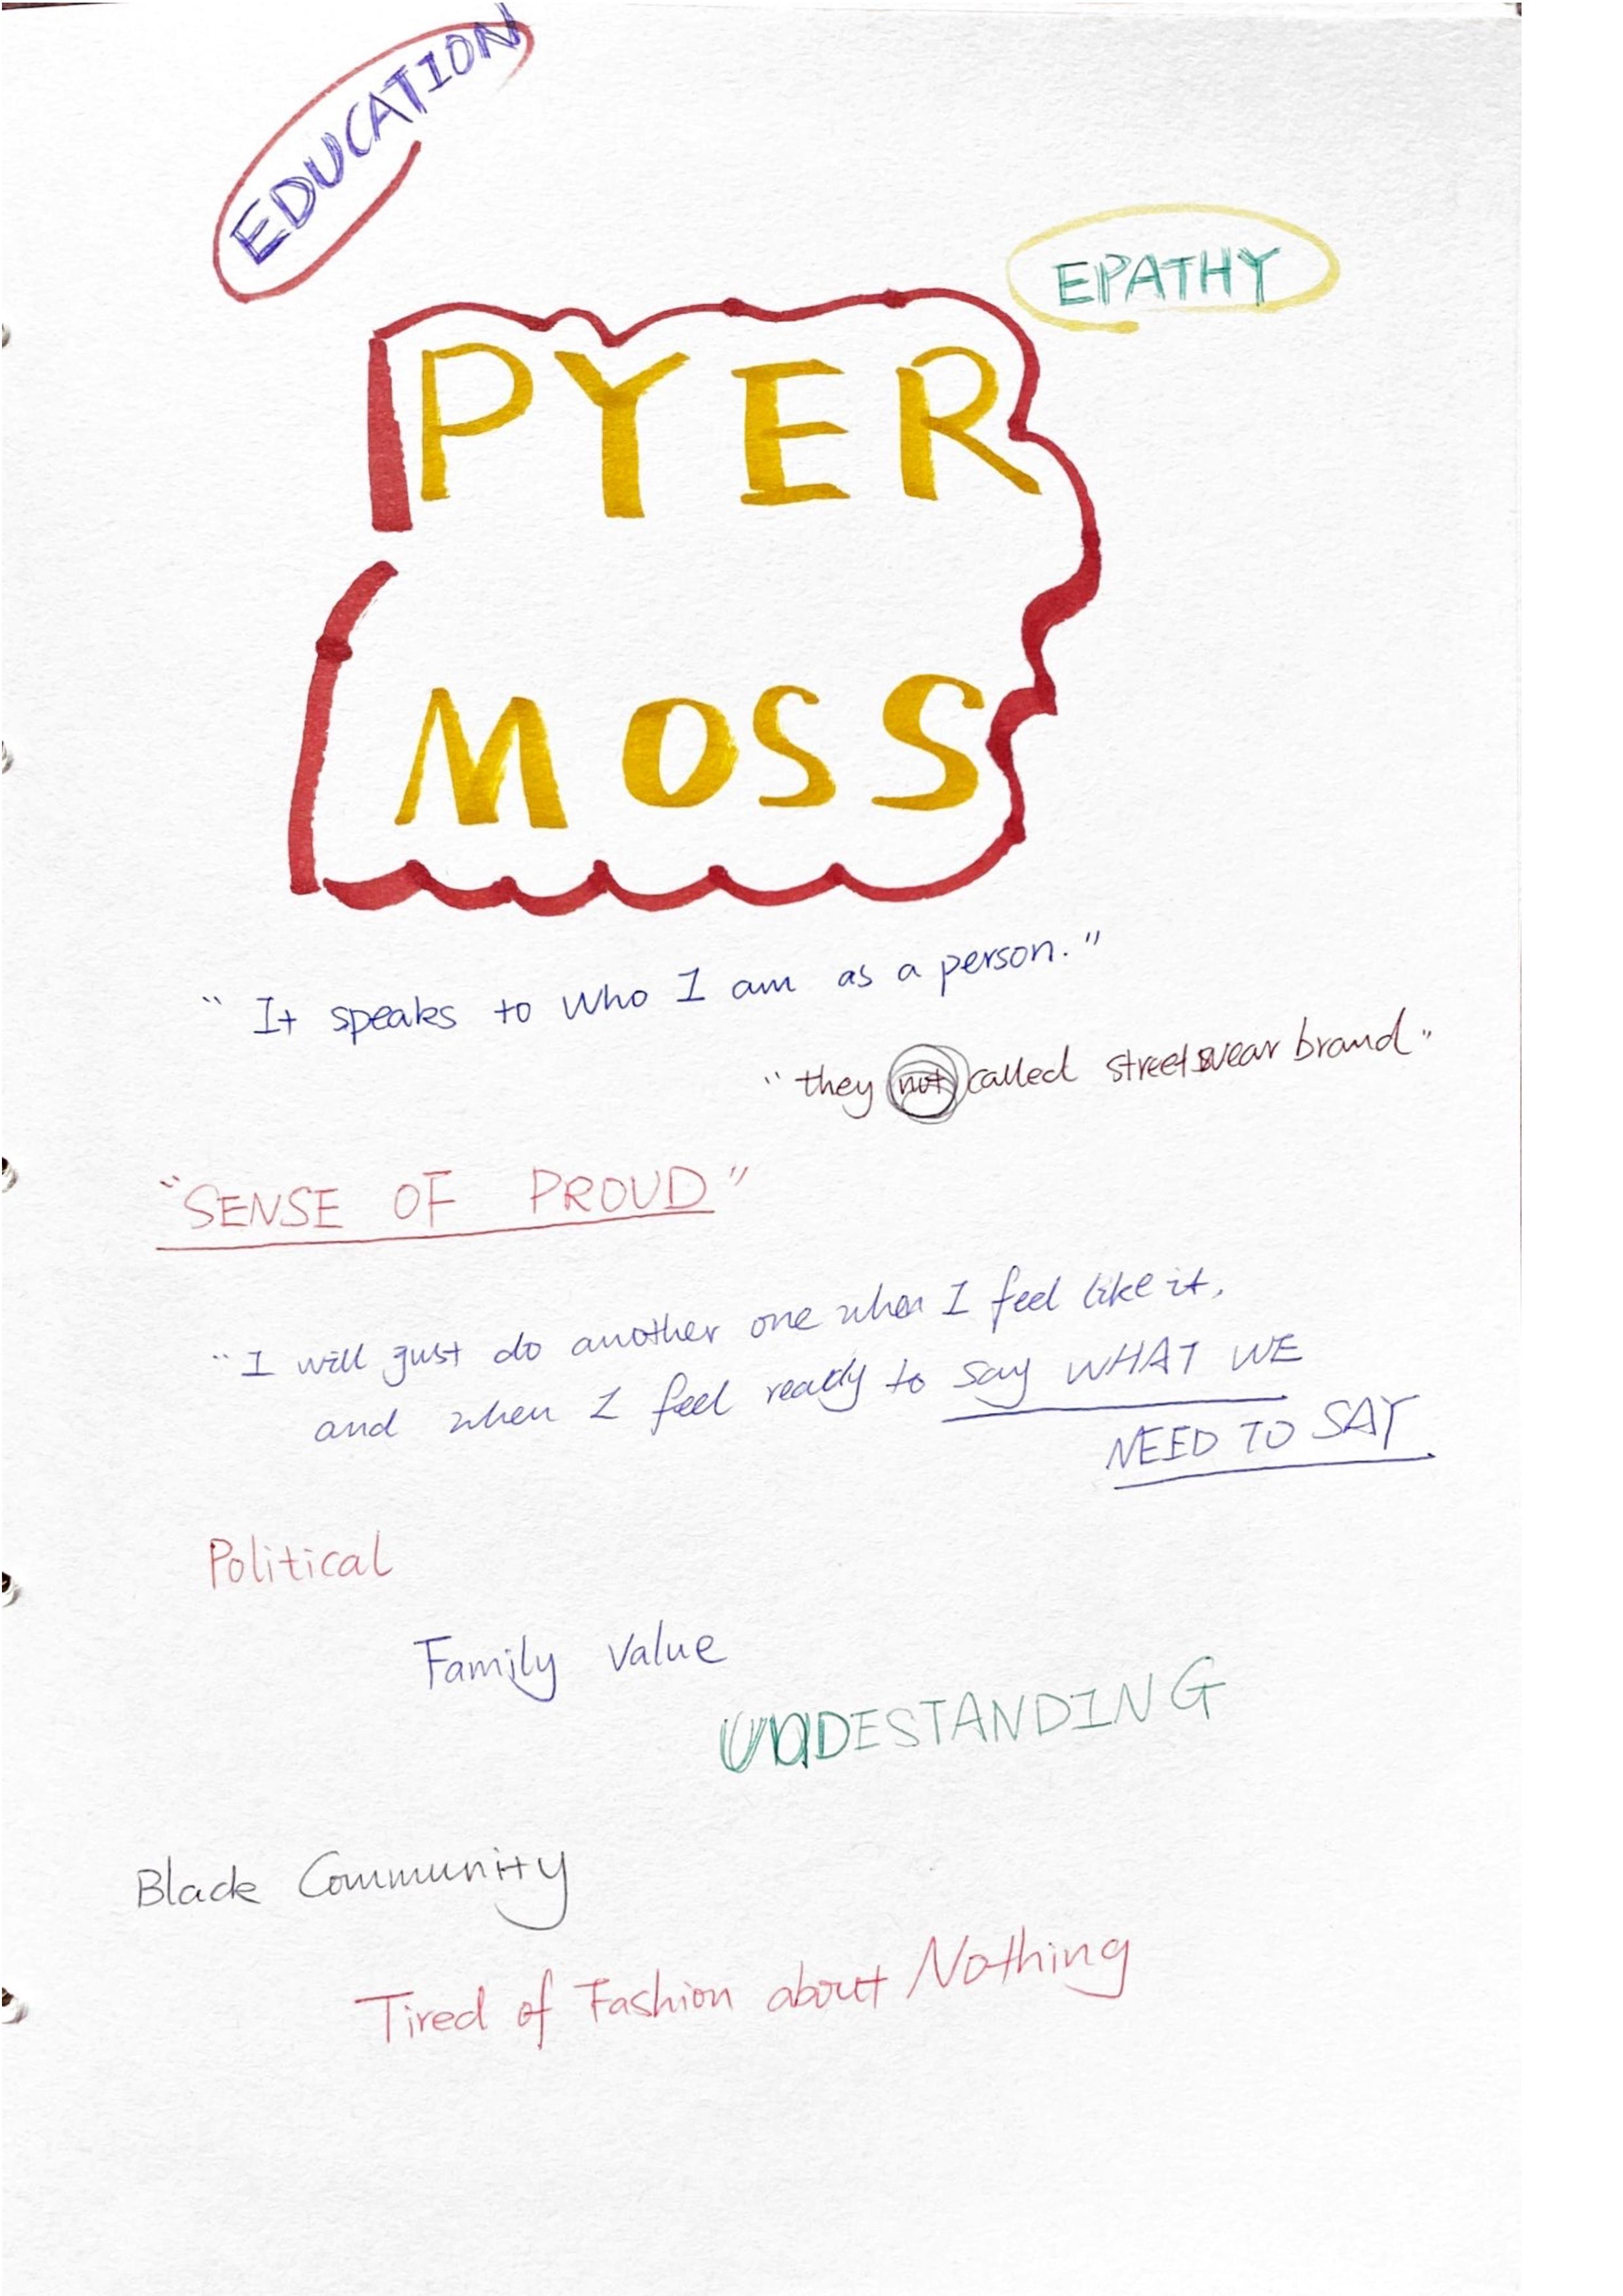 EDUCATION
EPATHY
PYER
MOSS
" It speaks to who I am as a person. "
" they not called streetswear brand "
"SENSE OF PROUD"
" I will just do another one when I feel like it,
and when I feel ready to say WHAT WE
NEED TO SAY
Political
Family Value
UNDESTANDING
Black Community
Tired of Fashion about Nothing